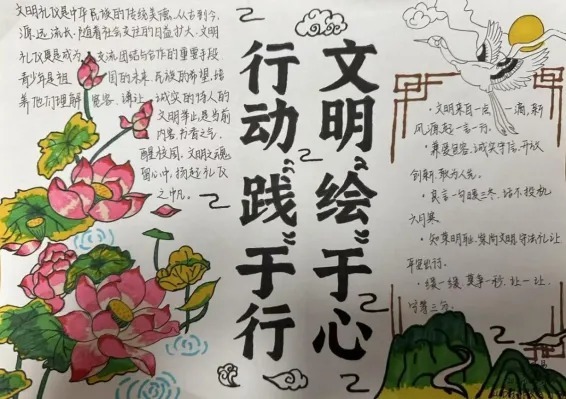 文明礼仪是中华民族的传统美德，从古到今，
源远流长，随着社会交往的日益扩大，文明
礼仪更是成为交流团结与合作的重要手段
青少年是祖国的未来，民族的希望，培
养他们理解、宽容、谦让、诚实的待人的
文明举止，是当前
内容，书香之气，
醒校园，文明之魂
留心中，扬起礼仪
之帆。
文明“绘”于心
行动“践”于行
·文明来自一点一滴，新
风源起一言一行。
·善爱宽容，诚实守信，开放
创新，敢为人先。
·良言一句暖三冬，话不投机
六月寒
·知荣明耻，崇尚文明，守法礼让
平安出行。
·缓一缓，莫争一秒，让一让，